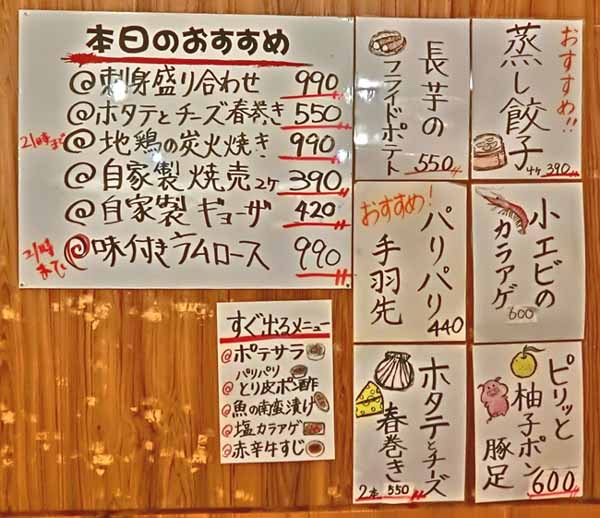 本日のおすすめ
@刺身盛り合わせ 990
@ホタテとチーズ春巻き 550
21時まで @地鶏の炭火焼き 990
@自家製焼売2ケ 390
@自家製ギョーザ 420
21時まで @味付きラムロース 990
長芋の
フライドポテト
550
おすすめ!!
蒸し餃子
4ケ 390
おすすめ!
パリパリ
手羽先
440
小エビの
カラアゲ
600
すぐ出るメニュー
@ポテサラ
パリパリ
@とり皮ポン酢
@魚の南蛮漬け
@塩カラアゲ
@赤辛牛すじ
ホタテとチーズ
春巻き
2本 550
ピリッと
柚子ポン
豚足
600